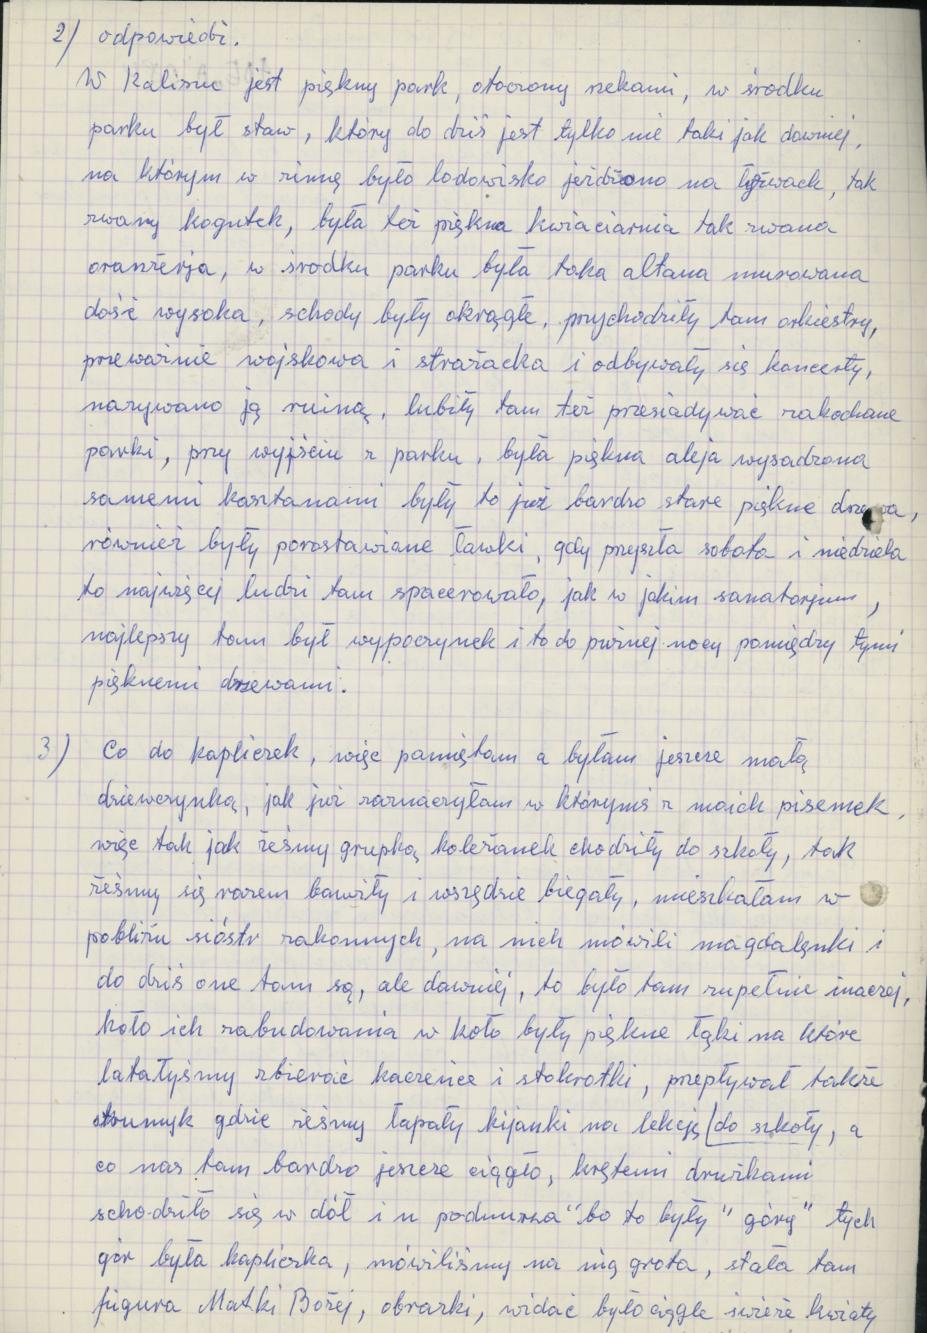 2) odpowiedzi.
W Kaliszu jest piękny park, otoczony rzekami, w środku
parku był staw, który do dziś jest tylko nie taki jak dawniej,
na którym w zimę było lodowisko jeżdżono na łyżwach, tak
zwany kogutek, była też piękna kwiaciarnia tak zwana
oranżerja, w środku parku była taka altana murowana
dość wysoka, schody były okrągłe, przychodziły tam orkiestry,
przeważnie wojskowa i strażacka i odbywały się koncerty,
nazywano ją ruiną, lubiły tam też przesiadywać zakochane
parki, przy wyjściu z parku, była piękna aleja wysadzona
samemi kasztanami były to już bardzo stare piękne drzewa,
również były porostawiane ławki, gdy przyszła sobota i niedziela
to najwięcej ludzi tam spacerowało, jak w jakim sanatorjum,
najlepszy tam był wypoczynek i to do późnej nocy pomiędzy tymi
pięknemi drzewami.
3) Co do kapliczek, więc pamiętam a byłam jeszcze małą
dziewczynką, jak już zaznaczyłam w którymś z moich pisemek,
więc tak jak żeśmy grupką koleżanek chodziły do szkoły, tak
żeśmy się razem bawiły i wszędzie biegały, mieszkałam w
pobliżu sióstr zakonnych, na nich mówili magdalenki i
do dziś one tam są, ale dawniej, to było tam zupełnie inaczej,
koło ich zabudowania w koło były piękne łąki na które
latałyśmy zbierać kaczeńce i stokrotki, przepływał także
strumyk gdzie żeśmy łapały kijanki na lekcję do szkoły, a
co nas tam bardzo jeszcze ciągło, krętemi dróżkami
schodziło się w dół i u podnurza "bo to były "góry" tych
gór była kapliczka, mówiliśmy na nią grota, stała tam
figura Matki Bożej, obrazki, widać było ciągle świeże kwiaty